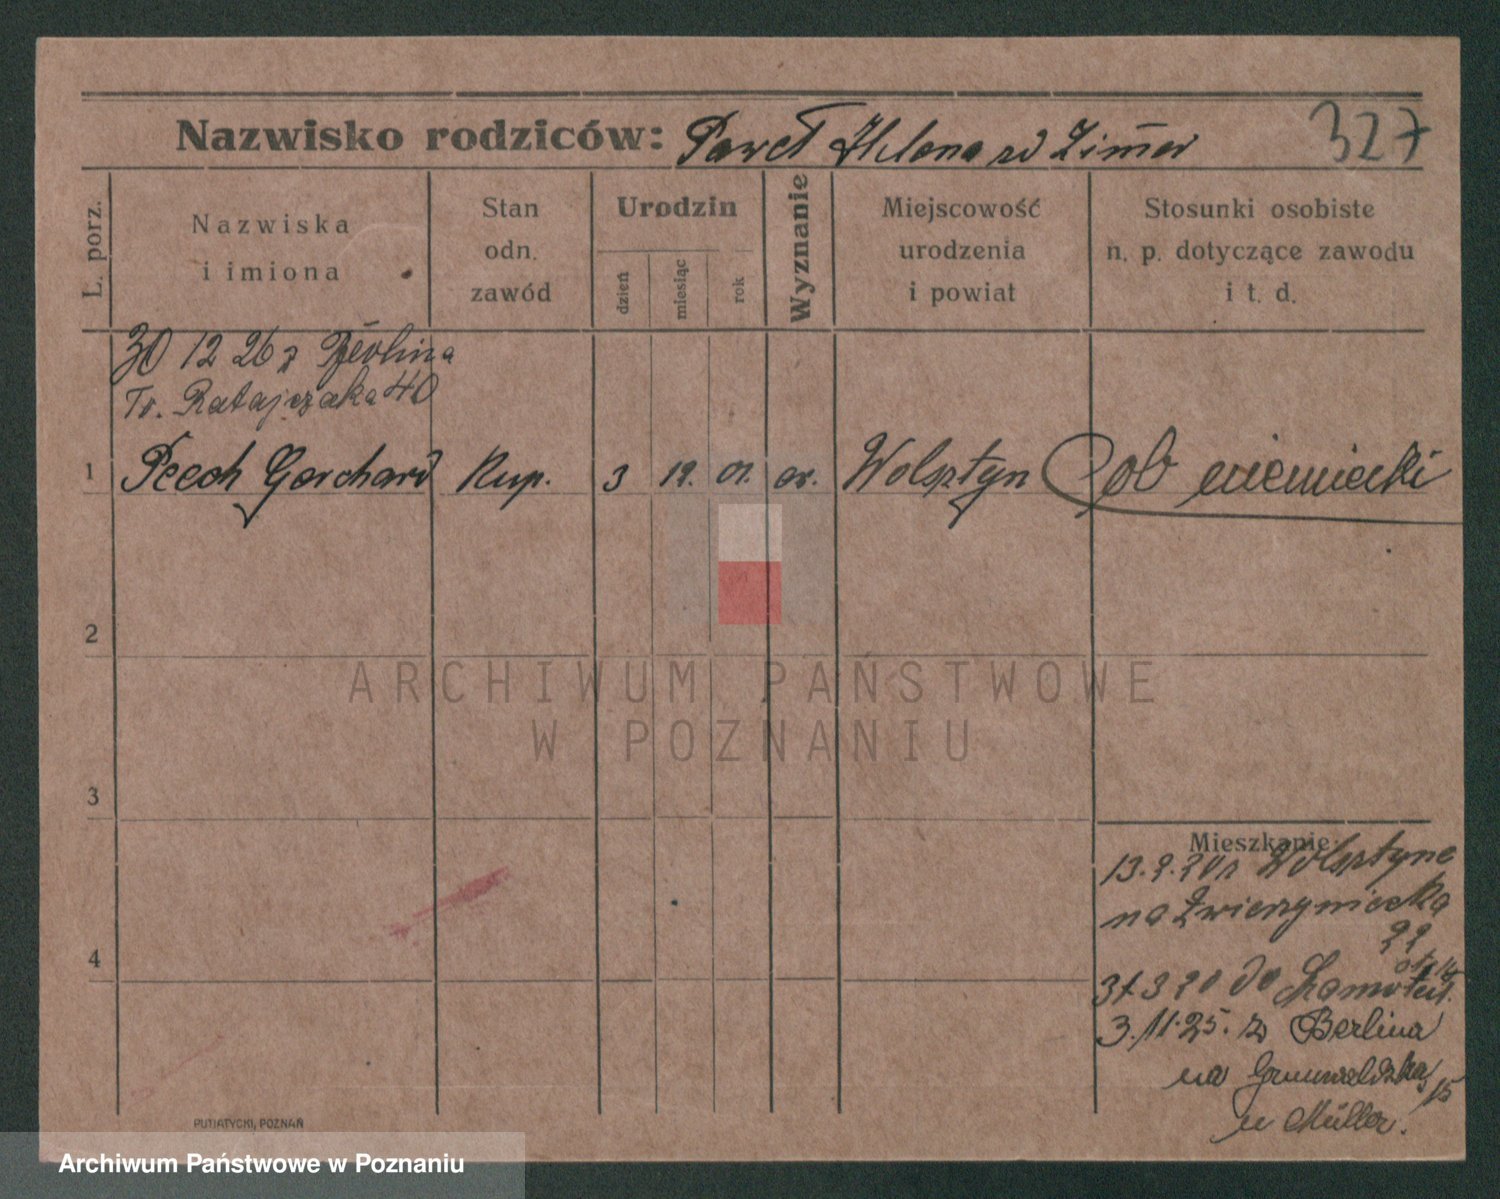 Nazwisko rodziców: Paweł Helena zd Zimer
327
L. porz.
Nazwiska
i imiona
Stan
odn.
zawód
Urodzin
dzień
miesiąc
rok
Wyznanie
Miejscowość
urodzenia
i powiat
Stosunki osobiste
n. p. dotyczące zawodu
i t. d.
30 12 26 z Berlina
Fr. Ratajczaka 40
1 Peech Gerchard Kup. 3 12. 01. ew. Wolsztyn ob niemiecki
2
3
4
Mieszkanie:
13.2.20 z Wolsztyna
na Zwierzyniecka
22
31.3 20 do
3.11.25. z Berlina
na Grunwaldzka 15
u Müller.
PUTIATYCKI, POZNAŃ
ARCHIWUM PAŃSTWOWE
W POZNANIU
Archiwum Państwowe w Poznaniu